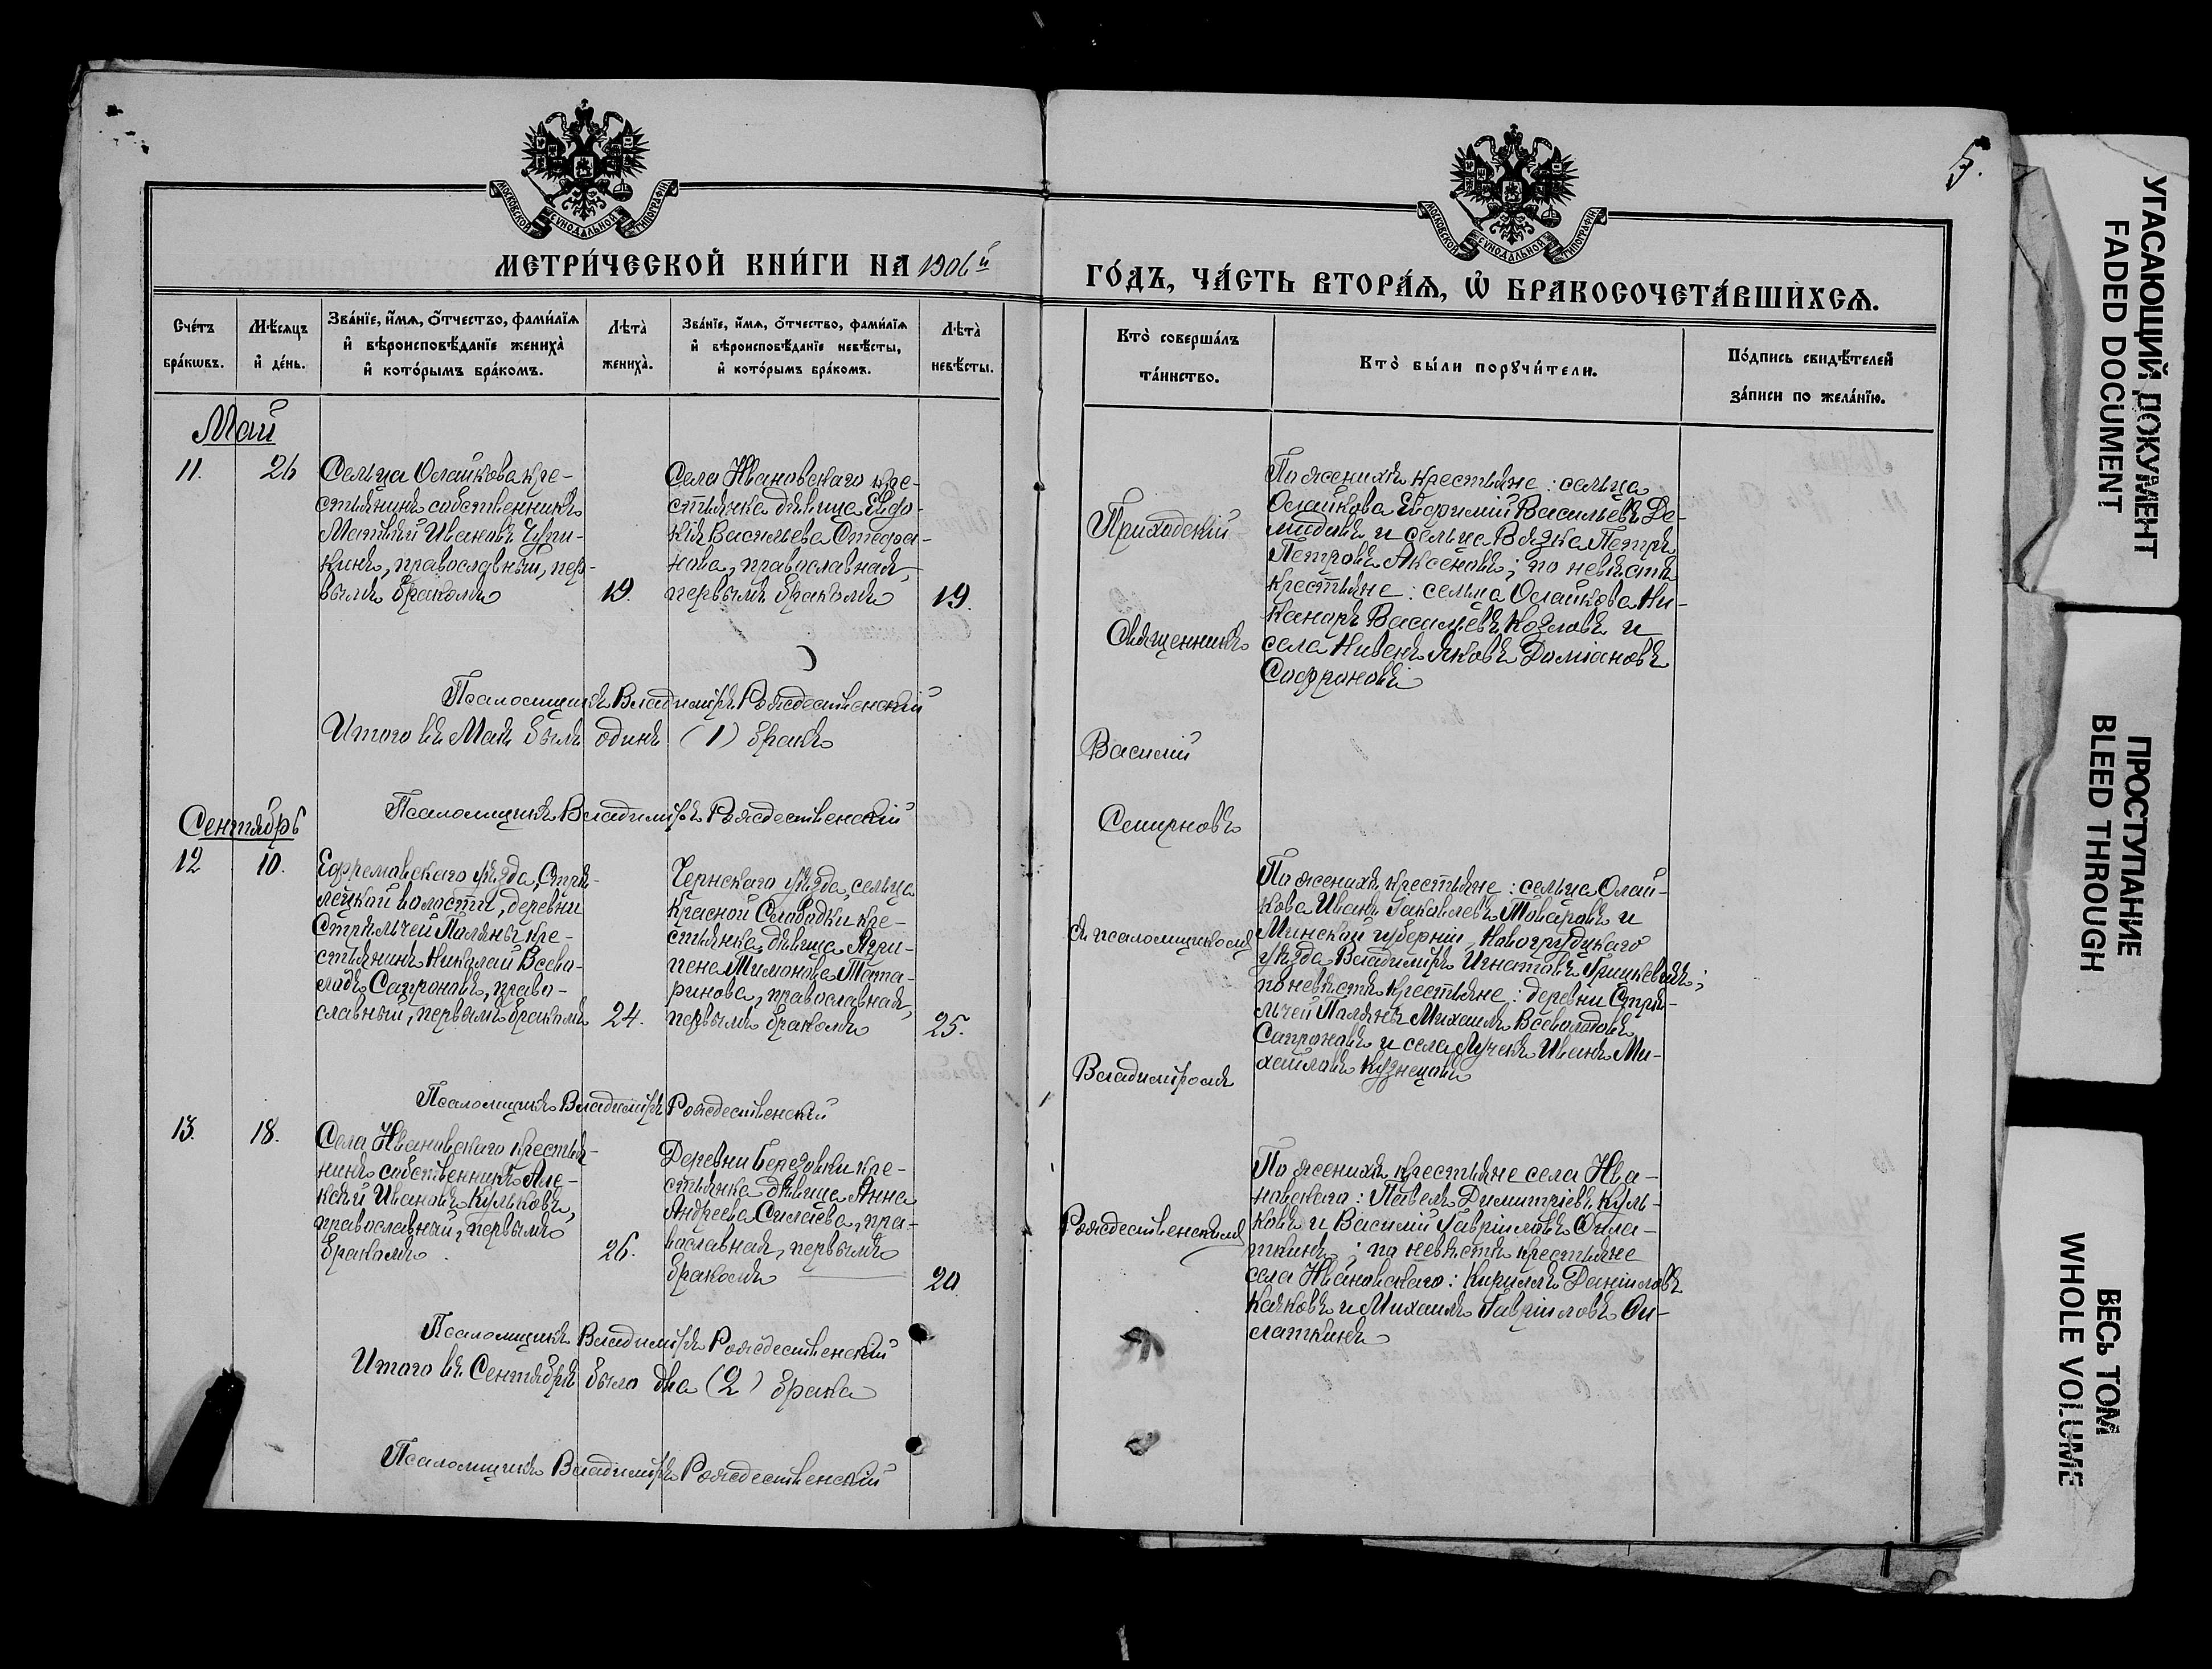 МОСКОВСКОЙ СѴНОДАЛЬНОЙ ТИПОГРАФІИ
МЕТРИ́ЧЕСКОЙ КНИ́ГИ НА 1906й
Сче́тъ бра́кѡвъ.
Мѣ́сяцъ и҆ де́нь.
Зва́нїе, и҆́мѧ, о҆́тчество, фами́лїѧ
и҆ вѣроисповѣ́данїе жениха̀
и҆ кото́рымъ бра́комъ.
Лѣта̀ жениха̀.
Зва́нїе, и҆́мѧ, о҆́тчество, фами́лїѧ
и҆ вѣроисповѣ́данїе невѣ́сты,
и҆ кото́рымъ бра́комъ.
Лѣта̀ невѣ́сты.
Май
11. 26
Сельца Олайкова кре-
стьянинъ собственникъ
Матѳій Ивановъ Чупи-
кинъ, православный, пер-
вымъ бракомъ
19.
Села Ивановскаго кре-
стьянка дѣвица Евдо-
кія Васильева Стефа-
нова, православная,
первымъ бракомъ
19.
Псаломщикъ Владиміръ Рождественскій
Итого въ Маѣ былъ одинъ (1) бракъ
Псаломщикъ Владиміръ Рождественскій
Сентябрь
12 10.
Ефремовскаго уѣзда, Стрѣ-
лецкой волости, деревни
Стрѣльчей Поляны кре-
стьянинъ Николай Всево-
лодъ Сапроновъ, право-
славный, первымъ бракомъ
24.
Чернскаго уѣзда, сельца
Красной Слободки кре-
стьянка дѣвица Агри-
пена Тимонова Тата-
ринова, православная,
первымъ бракомъ
25.
Псаломщикъ Владиміръ Рождественскій
13. 18.
Села Ивановскаго крестья-
нинъ собственникъ Але-
ксѣй Ивановъ Кульковъ,
православный, первымъ
бракомъ.
26.
Деревни Березовки кре-
стьянка дѣвица Анна
Андреева Силаева, пра-
вославная, первымъ
бракомъ
20.
Псаломщикъ Владиміръ Рождественскій
Итого въ Сентябрѣ было два (2) брака
Псаломщикъ Владиміръ Рождественскій
5.
МОСКОВСКОЙ СѴНОДАЛЬНОЙ ТИПОГРАФІИ
ГО́ДЪ, ЧА́СТЬ ВТОРА́Ѧ, Ѡ҆ БРАКОСОЧЕТА́ВШИХСѦ.
Кто̀ соверша́лъ
та́инство.
Кто̀ бы́ли порꙋчи́тели.
По́дпись свидѣ́телей
за́писи по жела́нїю.
Приходскій
Священникъ
Василій
Смирновъ
съ псаломщикомъ
Владиміромъ
Рождественскимъ
По женихѣ крестьяне: сельца
Олайкова Евфимій Васильевъ Де-
мидовъ и сельца Вязка Петръ
Петровъ Аксеновъ; по невѣстѣ
крестьяне: сельца Олайкова Ни-
каноръ Васильевъ Козловъ и
села Нивенъ Яковъ Даміановъ
Софроновъ
По женихѣ крестьяне: сельца Олай-
кова Иванъ Іаковлевъ Товаровъ и
Минской губерніи, Новогрудскаго
уѣзда Владиміръ Игнатовъ Грицкевичъ;
по невѣстѣ крестьяне: деревни Стрѣ-
льчей Поляны Михаилъ Всеволодовъ
Сапроновъ и села Лучекъ Иванъ Ми-
хайловъ Кузнецовъ
По женихѣ крестьяне села Ива-
новскаго: Павелъ Димитріевъ Куль-
ковъ и Василій Гавріиловъ Осла-
ткинъ; по невѣстѣ крестьяне
села Ивановскаго: Кириллъ Даніиловъ
и Михаилъ Гавріиловъ
УГАСАЮЩИЙ ДОКУМЕНТ
FADED DOCUMENT
ПРОСТУПАНИЕ
BLEED THROUGH
ВЕСЬ ТОМ
WHOLE VOLUME